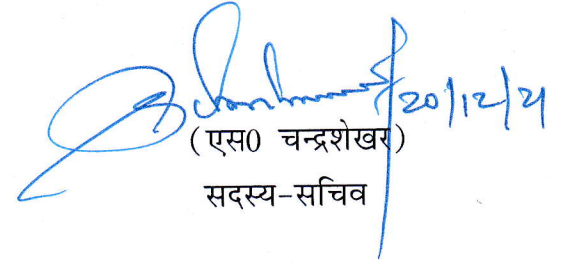 20/12/21
(एस0 चन्द्रशेखर)
सदस्य-सचिव